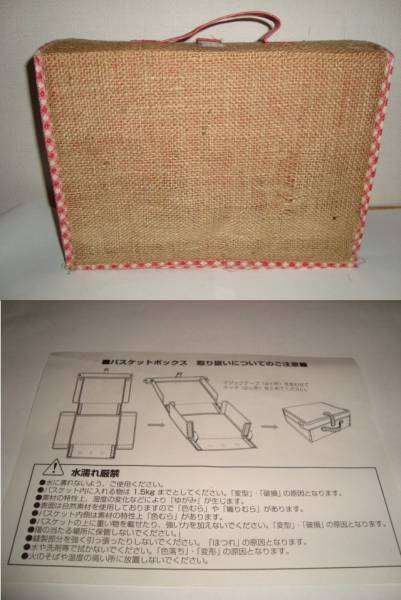 ■バスケットボックス 取り扱いについてのご注意■
水濡れ厳禁
●水に濡れないよう、ご使用ください。
●バスケット内に入れる物は 1.5kg までとしてください。「変型」・「破損」の原因となります。
●素材の特性上、湿度の変化などにより「ゆがみ」が生じます。
●表面は自然素材を使用しておりますので「色むら」や「織りむら」があります。
●バスケット内側は素材の特性上「色むら」があります。
●バスケットの上に重い物を載せたり、強い力を加えないでください。「変型」・「破損」の原因となります。
●陽の当たる場所に保管しないでください。
●縫製部分を強く引っ張ったりしないでください。「ほつれ」の原因となります。
●水や洗剤等で拭かないでください。「色落ち」・「変形」の原因となります。
●火のそばや温度の高い所に放置しないでください。